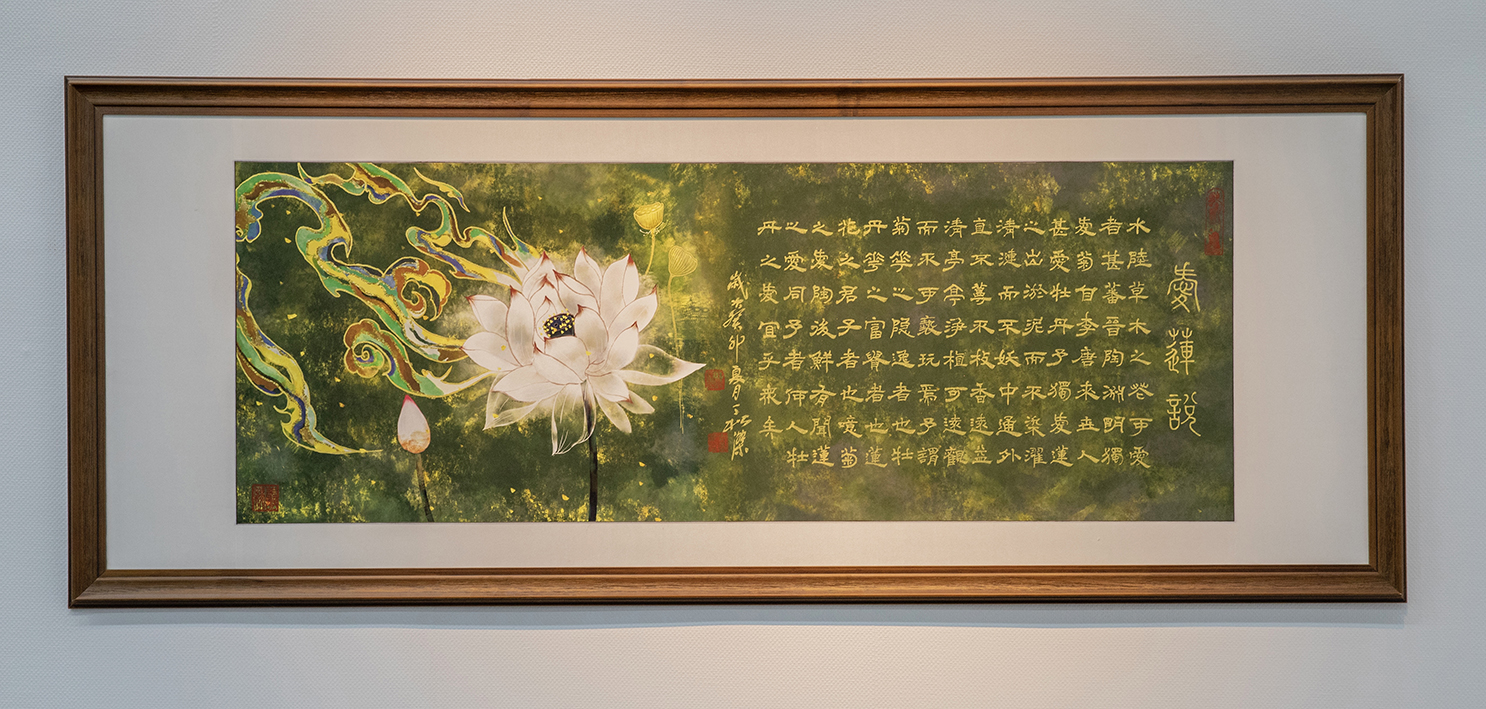 愛蓮說
水陸草木之花可愛
者甚蕃晉陶淵明獨
愛菊自李唐來世人
甚愛牡丹予獨愛蓮
之出淤泥而不染濯
清漣而不妖中通外
直不蔓不枝香遠益
清亭亭淨植可遠觀
而不可褻玩焉予謂
菊花之隱逸者也牡
丹花之富貴者也蓮
花之君子者也噫菊
之愛陶後鮮有聞蓮
之愛同予者何人牡
丹之愛宜乎衆矣
歲次癸卯夏月